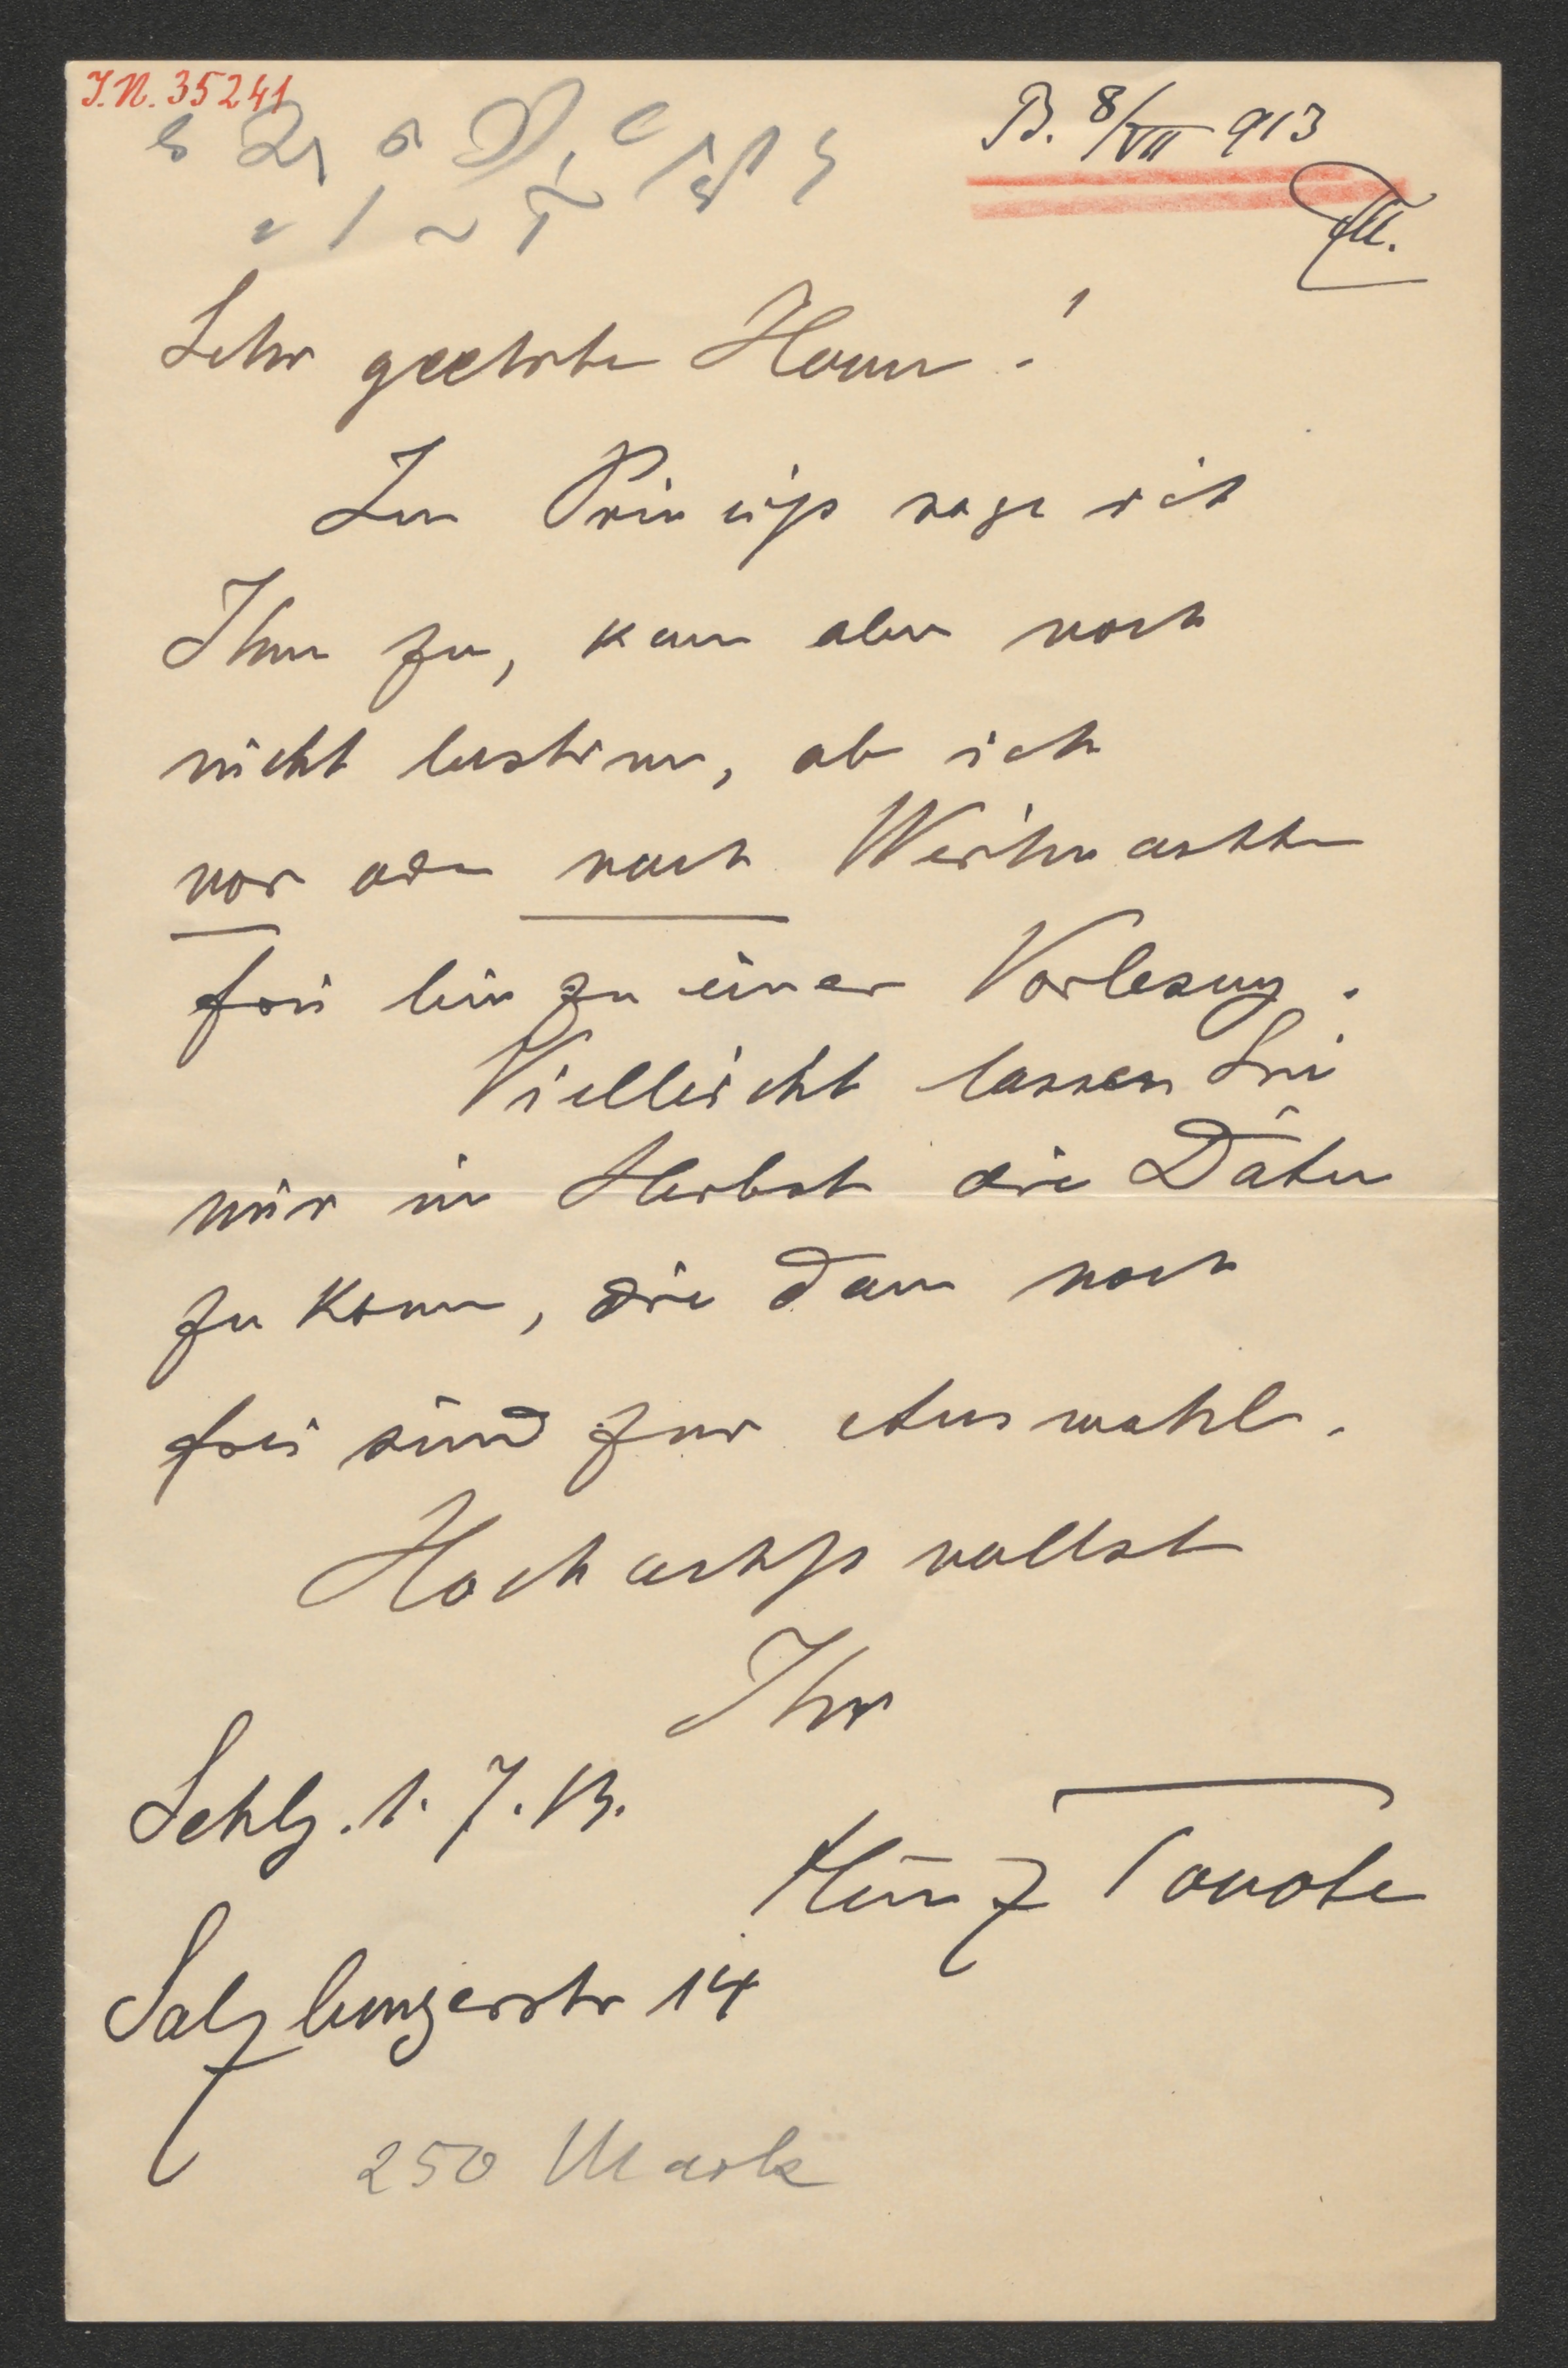 I.N. 35241
B. 8/VII 913
Sehr geehrter Herr!
Im Princip sage ich
Ihnen zu, kann aber noch
nicht bestimmen, ob ich
vor oder nach Weihnachten
frei bin zu einer Vorlesung.
Vielleicht lassen Sie
mir im Herbst die Daten
zu kommen, die dann noch
frei sind zur Auswahl.
Hochachtgsvollst
Ihr
Schbg. 1. 7. 13.
Heinz Tovote
Salzburgerstr 14
250 Mark